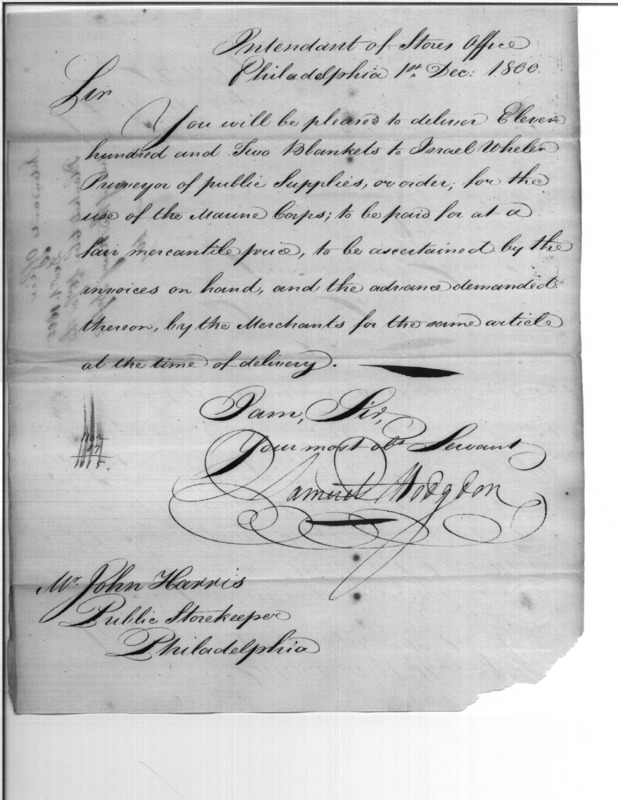 Intendant of Stores Office
Philadelphia 1st. Dec: 1800
Sir
You will be pleased to deliver Eleven
hundred and Two Blankets to Israel Whelen
Purveyor of public Supplies, or order; for the
use of the Marine Corps; to be paid for at a
fair mercantile price, to be ascertained by the
invoices on hand, and the advance demanded
thereon, by the Merchants for the same article
at the time of delivery.
I am, Sir,
Your most obt. Servant
Samuel Hodgdon
Mr. John Harris
Public Storekeeper
Philadelphia